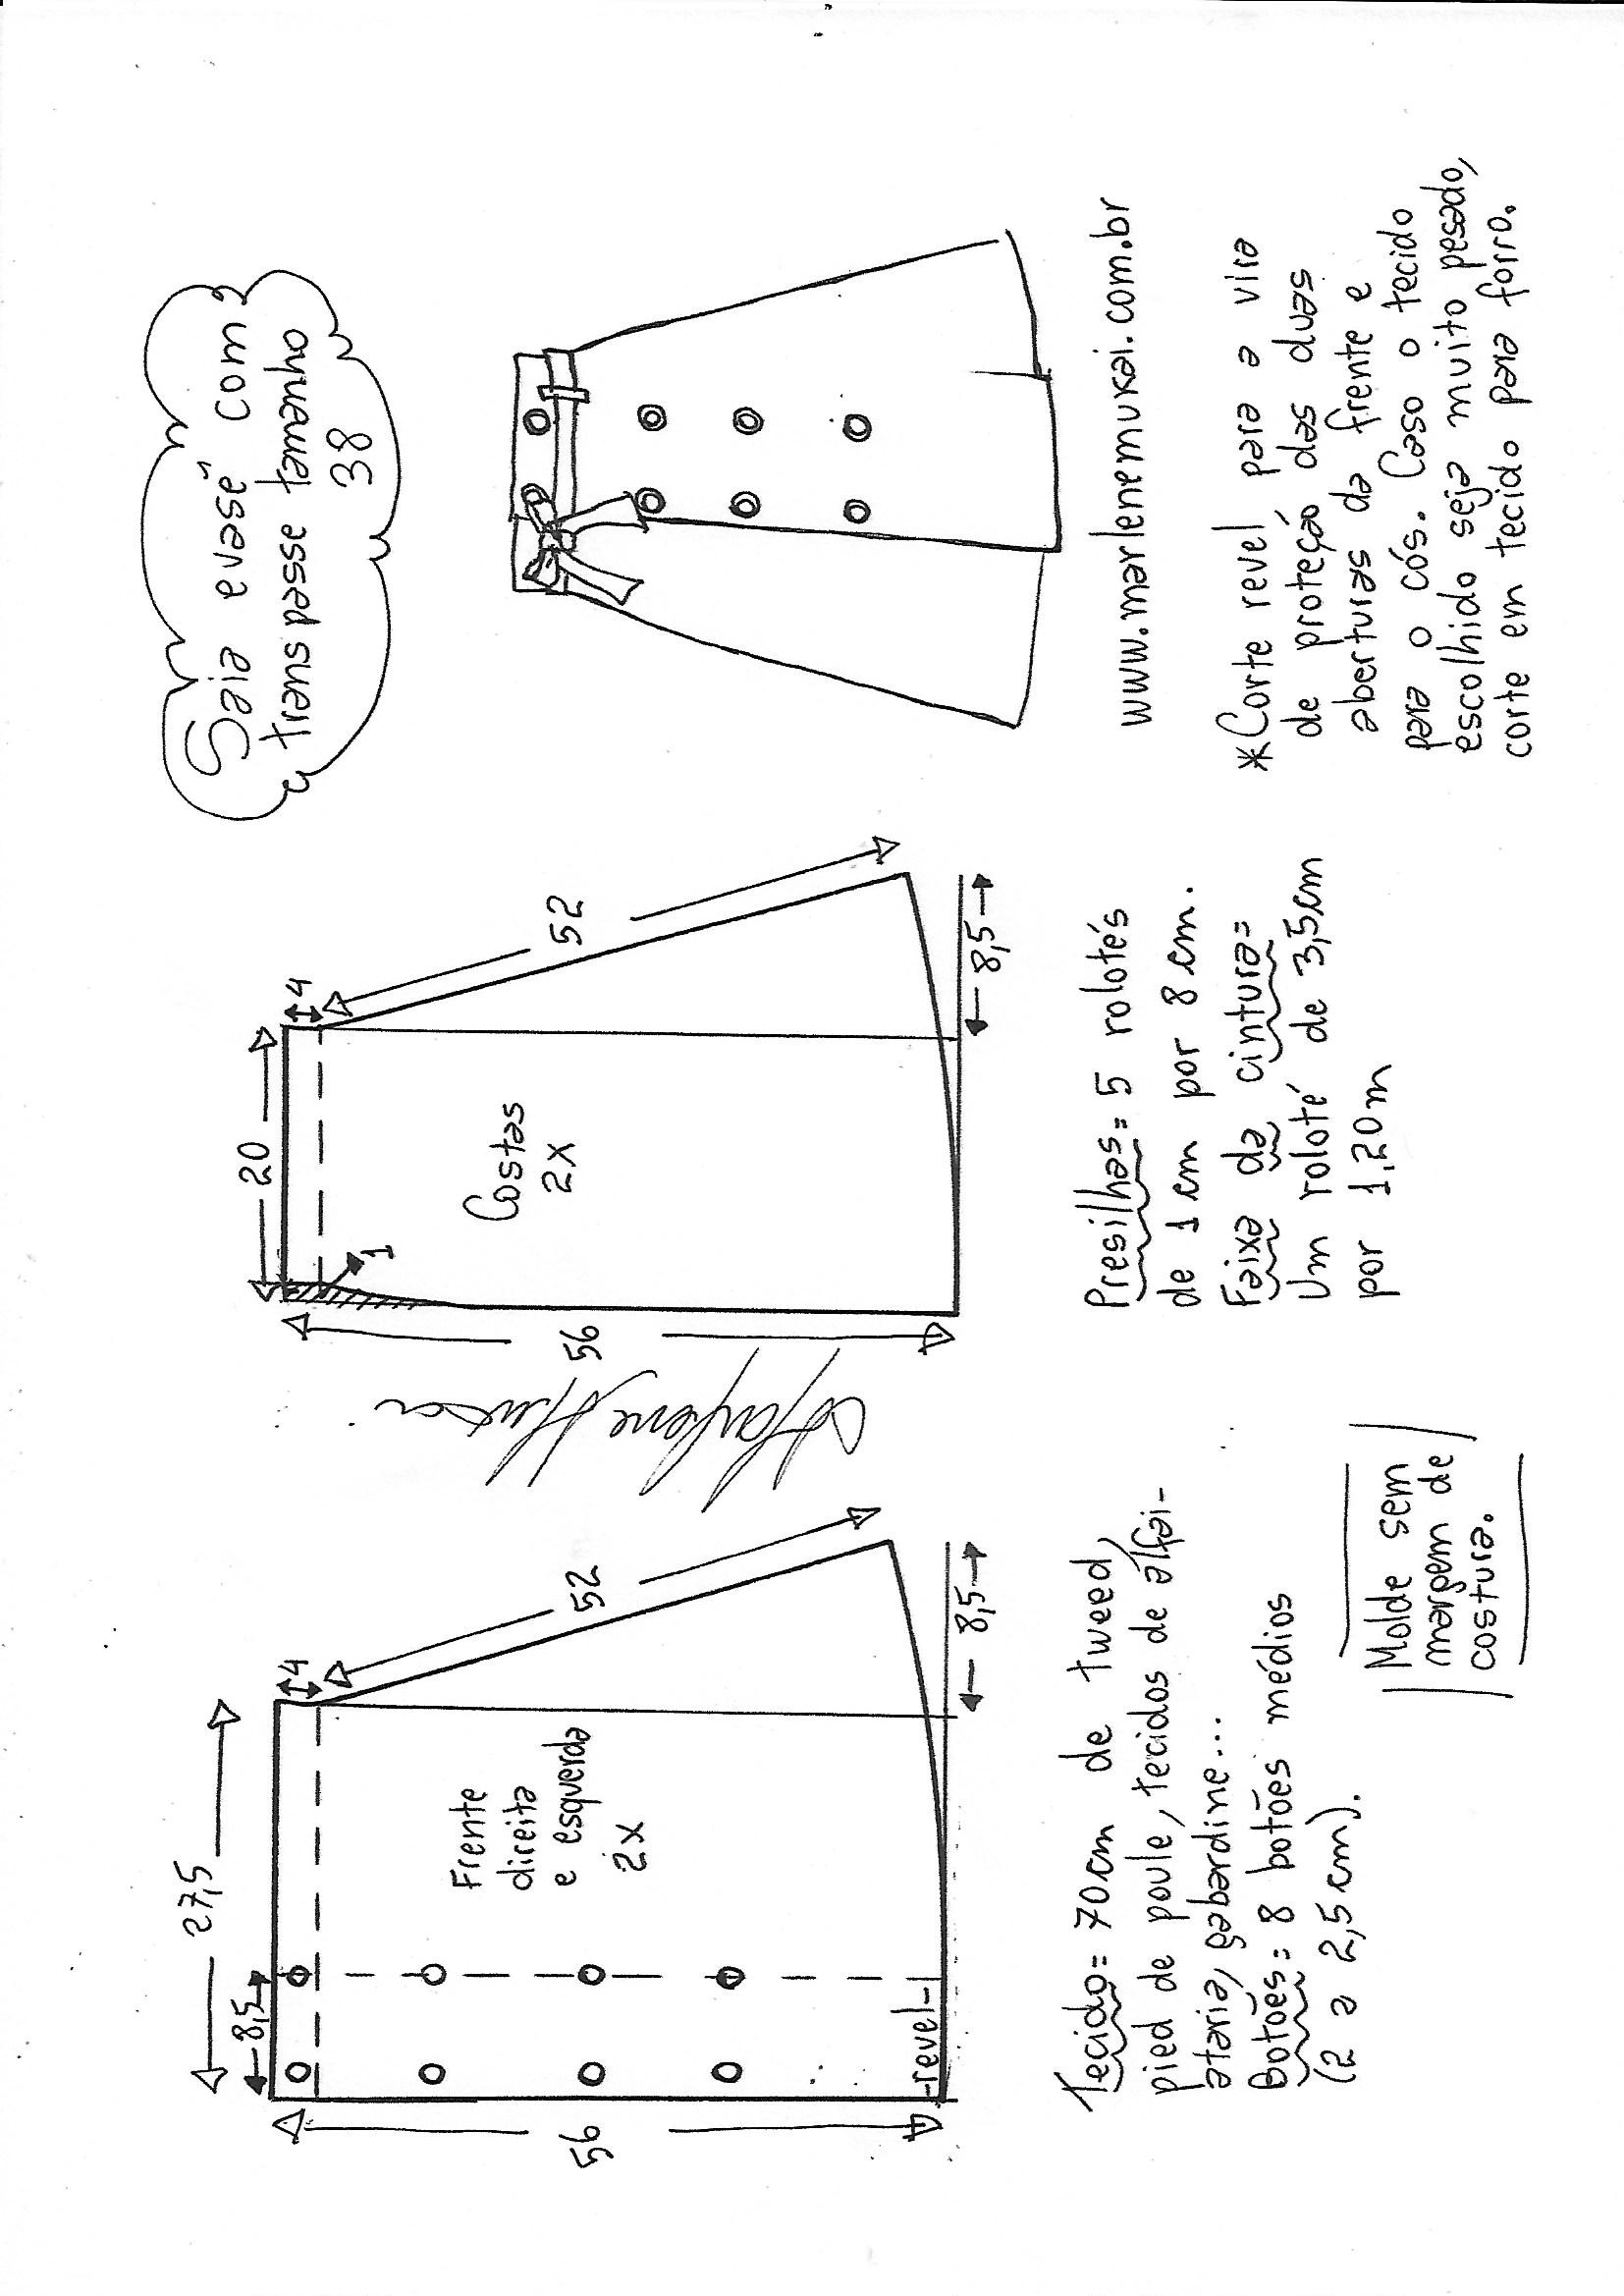 Saia evasê com
transpasse tamanho
38
27,5
8,5
4
52
56
Frente
direita
e esquerda
2x
-revel-
8,5
20
4
52
1
56
Costas
2x
8,5
Marlene Mukai
www.marlenemukai.com.br
Tecido= 70cm de tweed,
pied de poule, tecidos de alfai-
ataria, gabardine...
Botões= 8 botões médios
(2 a 2,5cm).
Molde sem
margem de
costura.
Presilhas= 5 rolotés
de 1cm por 8cm.
Faixa da cintura=
Um roloté de 3,5cm
por 1,20m
*Corte revel para a vira
de proteção das duas
aberturas da frente e
para o cós. Caso o tecido
escolhido seja muito pesado,
corte em tecido para forro.